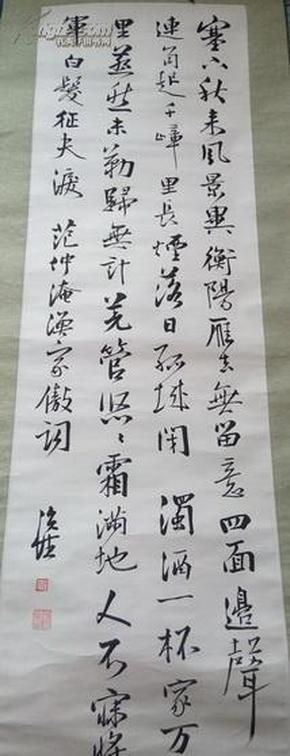 塞下秋来風景異衡陽雁去無留意四面邊聲
連角起千嶂里長煙落日孤城閉濁酒一杯家万
里燕然未勒歸無計羌管悠〻霜滿地人不寐將
軍白髮征夫淚 范仲淹漁家傲詞